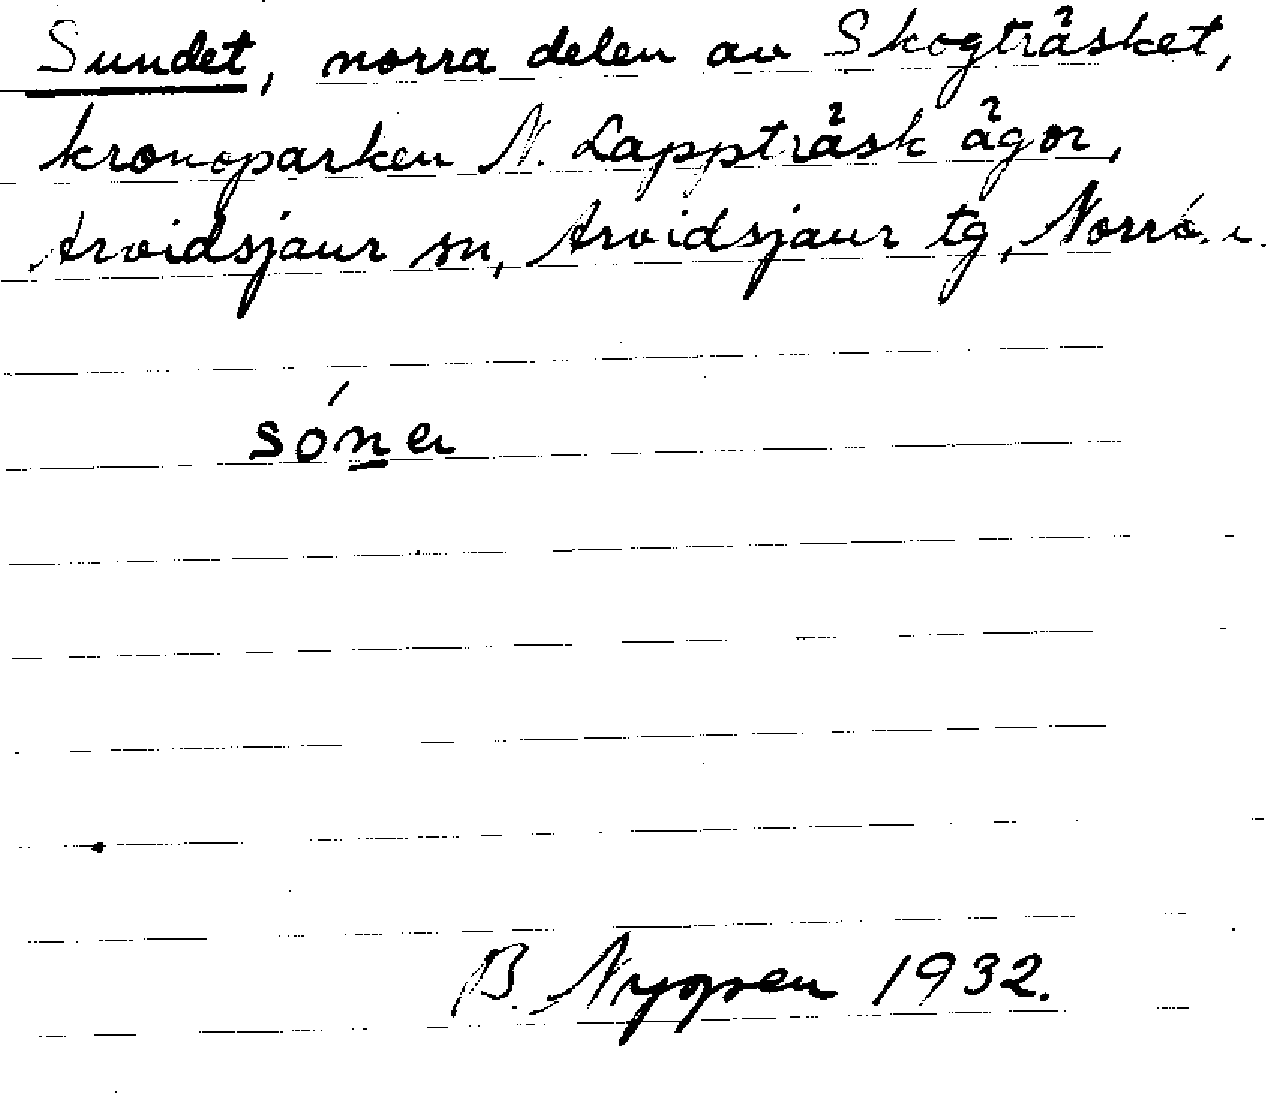 Sundet, norra delen av Skogträsket,
kronoparken N. Lappträsk ägor,
Arvidsjaur sn, Arvidsjaur tg, Norrb. l.
sóṉ
B. Nygren 1932.